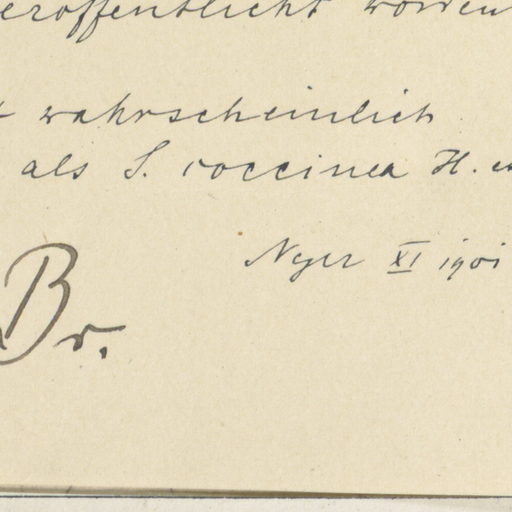 eröffentlicht worden
t wahrscheinlich
als S. coccinea H. e
Nyer XI 1901
Br.